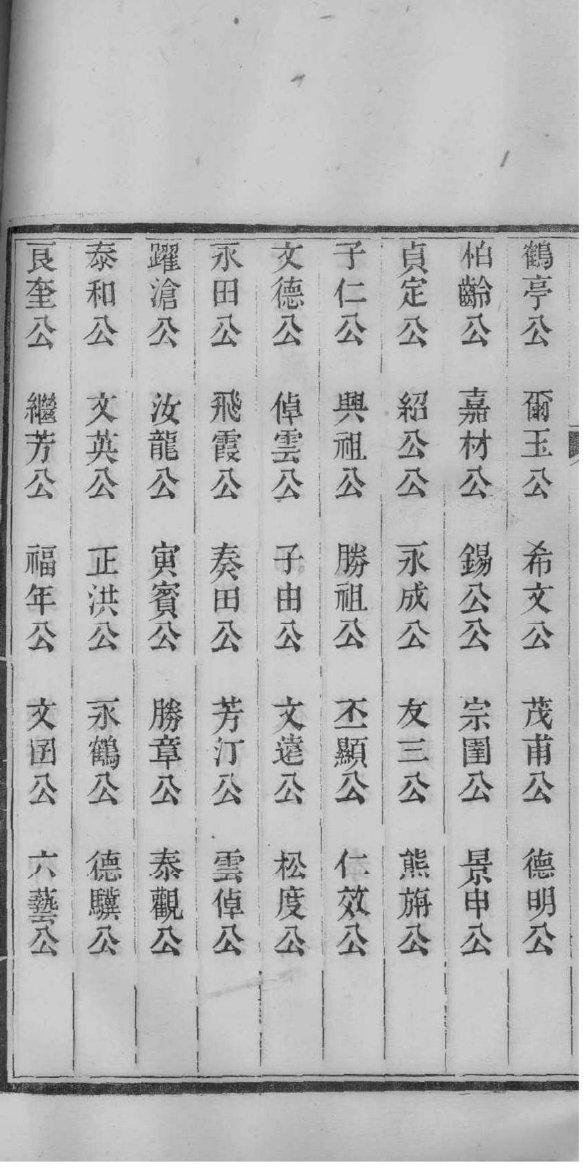 鶴亭公 爾玉公 希文公 茂甫公 德明公
柏齡公 嘉材公 錫公公 宗圍公 景申公
貞定公 紹公公 永成公 友三公 熊旃公
子仁公 興祖公 勝祖公 丕顯公 仁效公
文德公 倬雲公 子由公 文遠公 松度公
永田公 飛霞公 奏田公 芳汀公 雲倬公
躍滄公 汝龍公 寅賓公 勝章公 泰觀公
泰和公 文英公 正洪公 永鶴公 德驥公
良奎公 繼芳公 福年公 文公 六藝公